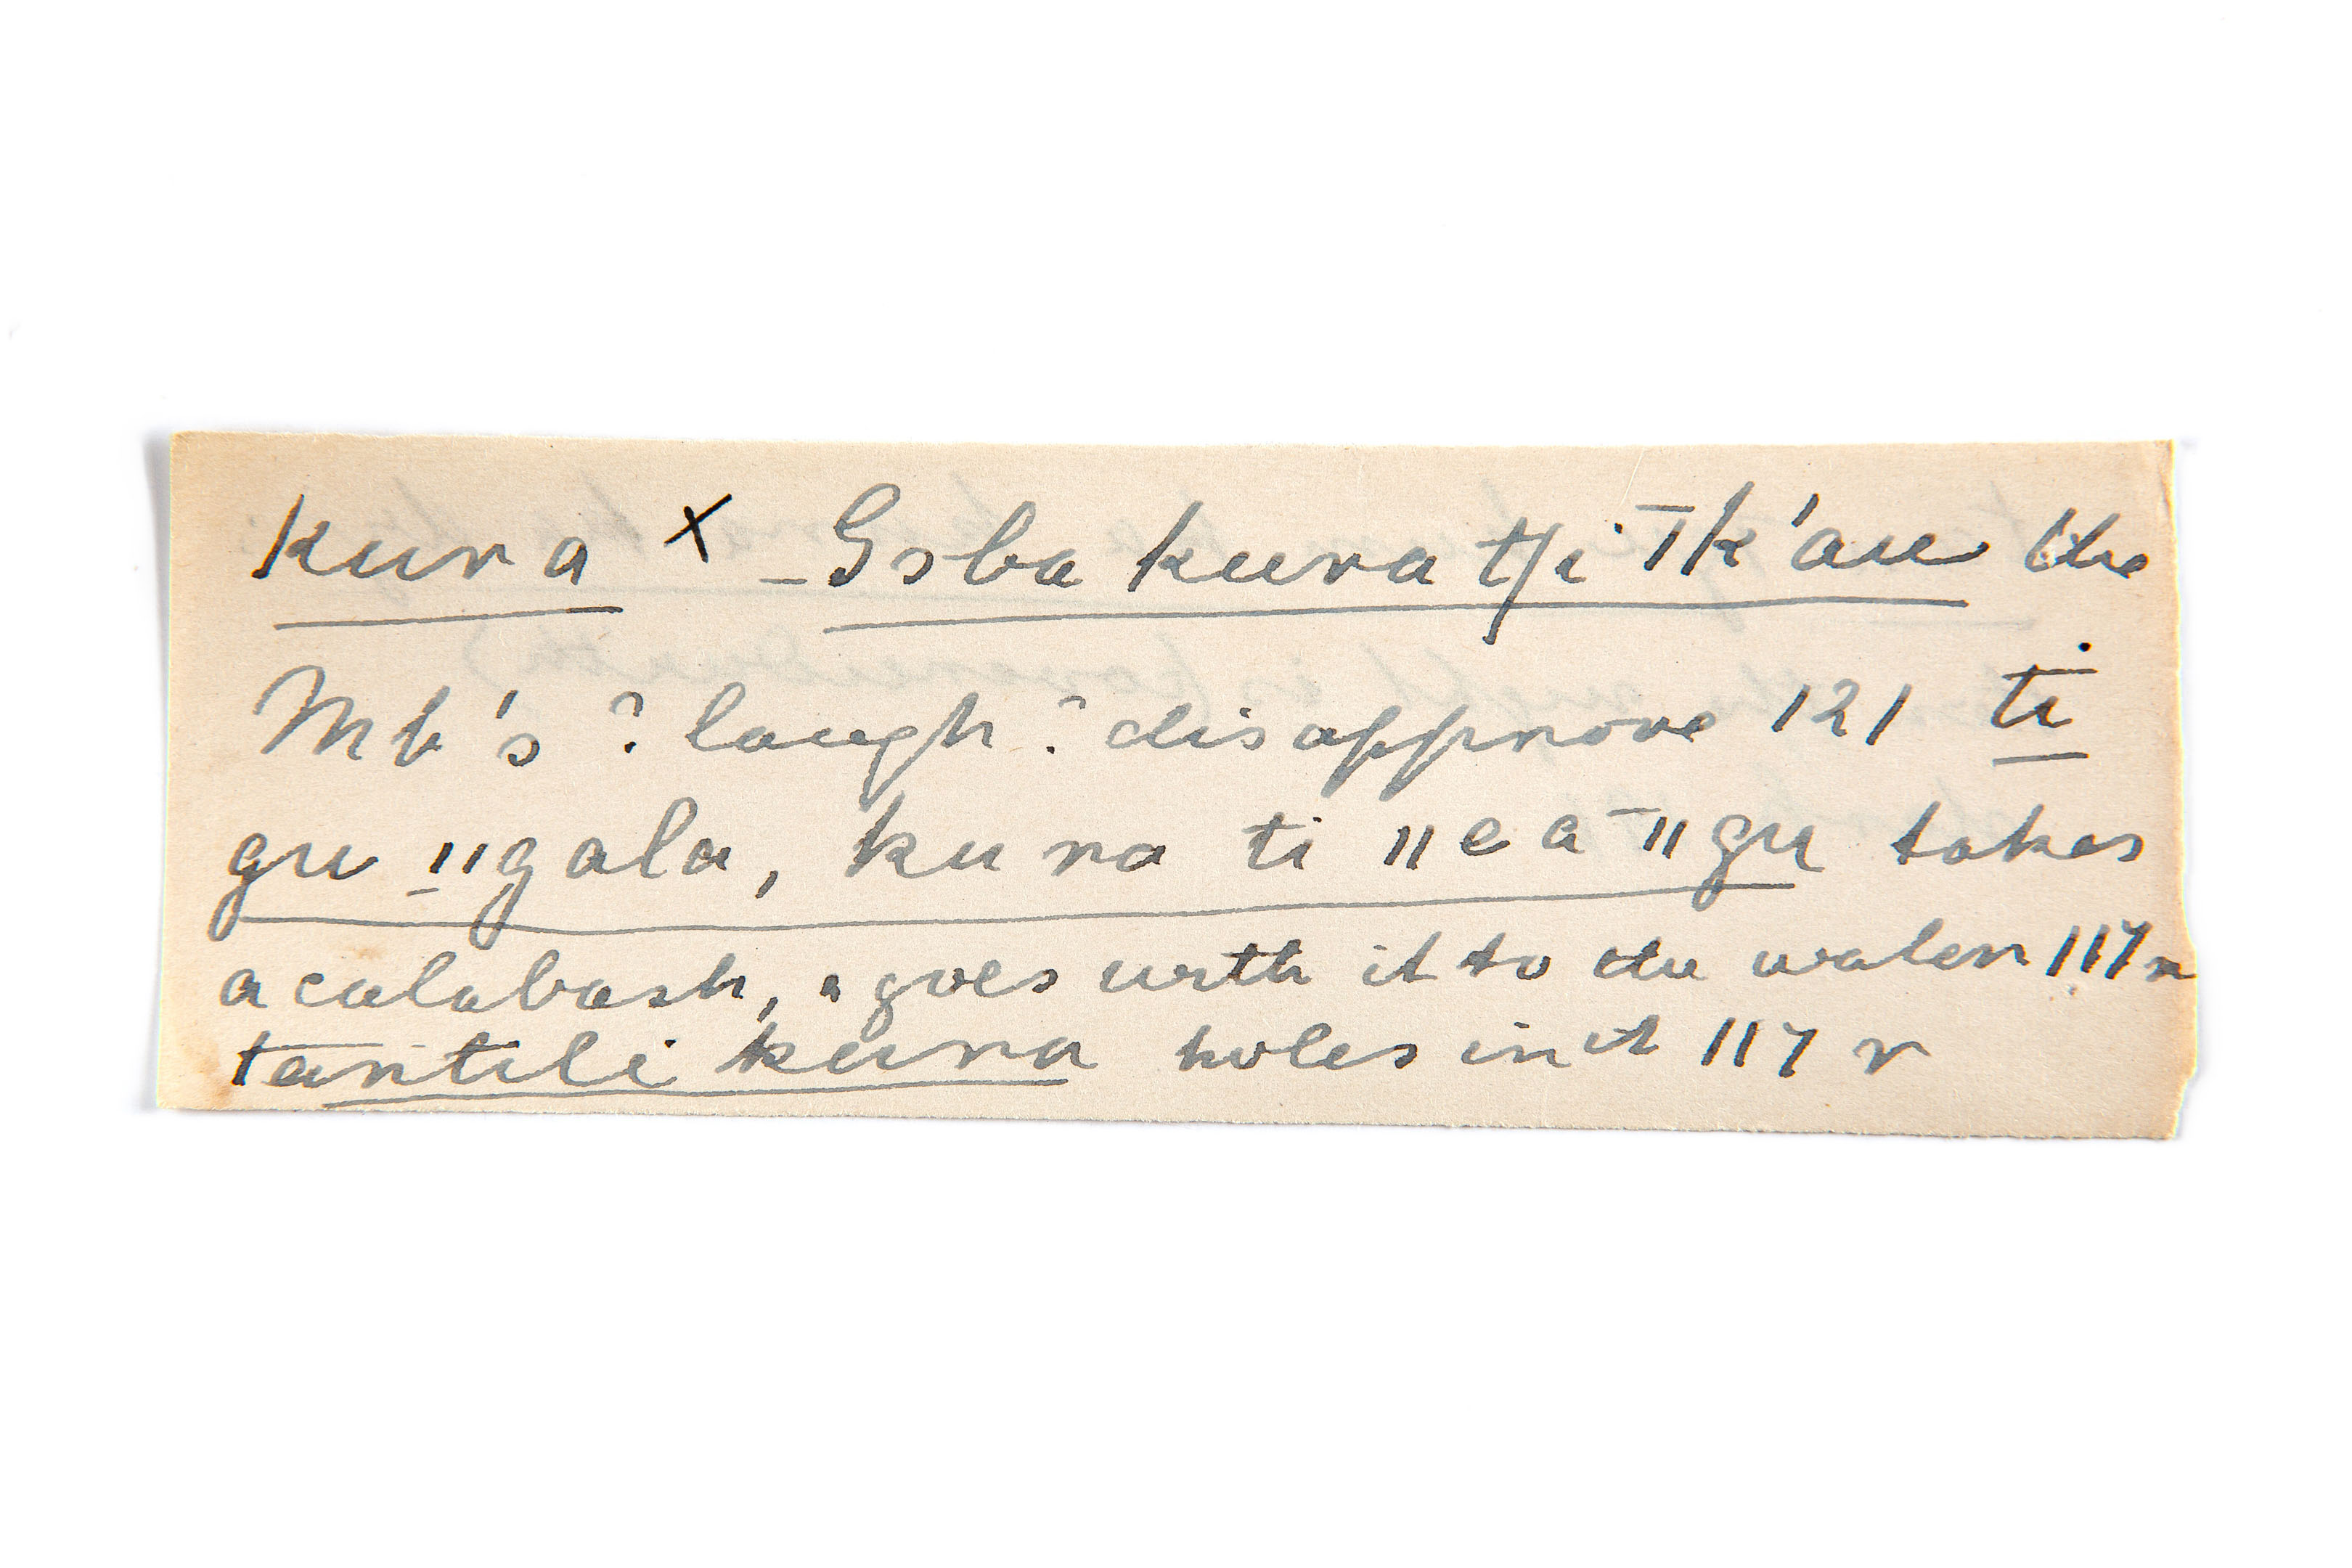 kura x - Goba kura tʃi ˉ|k'au the
Mb's ? laugh ? disapprove 121 ti
gu ǁgala, kura ti ǁe a ˉǁgu takes
a calabash, & goes with it to the water 117 r
tantili kura holes in it 117 r